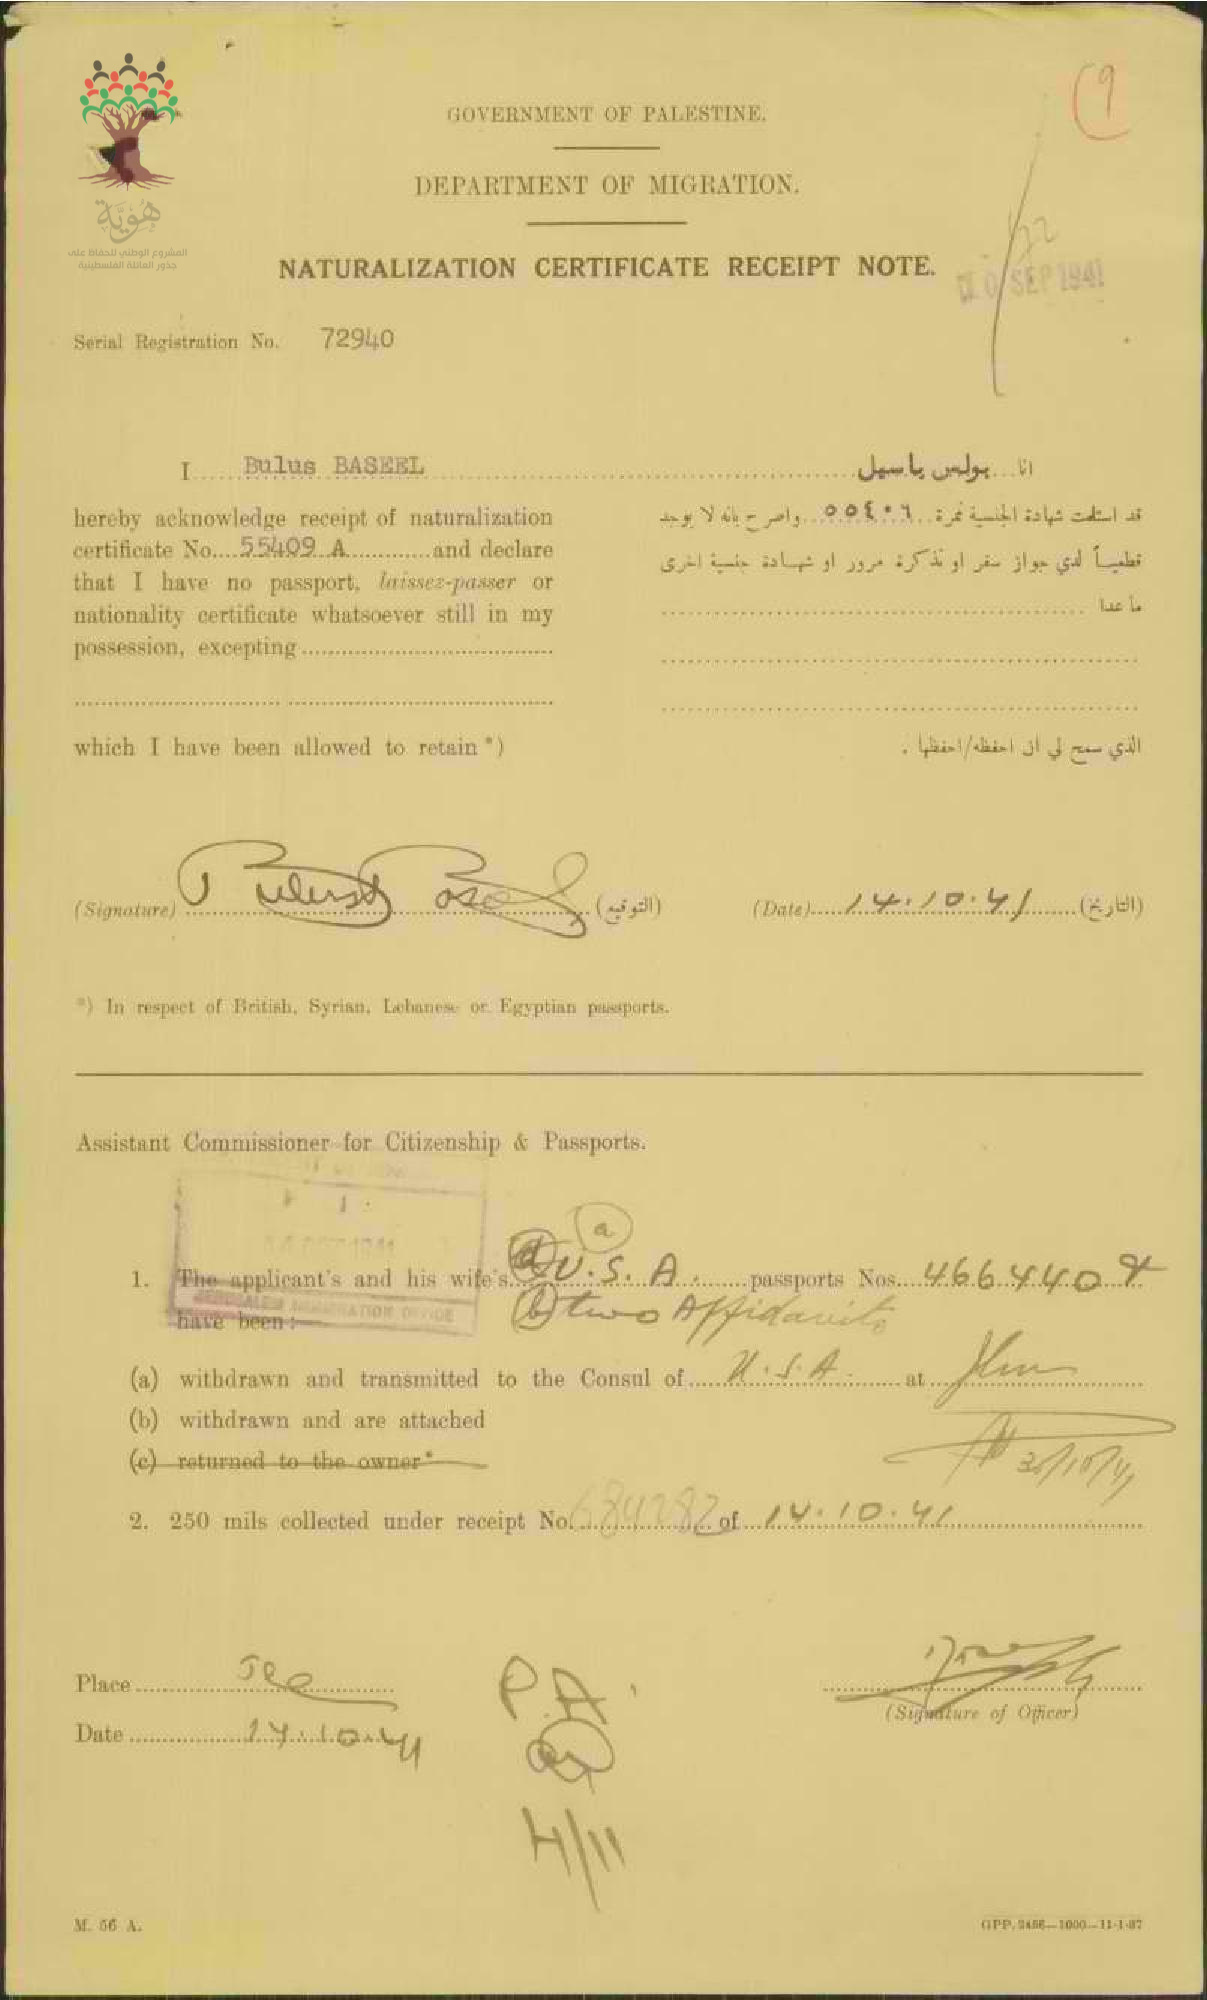 هُوِيَّة
المشروع الوطني للحفاظ على
جذور العائلة الفلسطينية
(9
GOVERNMENT OF PALESTINE.
DEPARTMENT OF MIGRATION.
NATURALIZATION CERTIFICATE RECEIPT NOTE.
SEP 1941
Serial Registration No. 72940
I Bulus BASEEL
hereby acknowledge receipt of naturalization
certificate No. 55409 A and declare
that I have no passport, laissez-passer or
nationality certificate whatsoever still in my
possession, excepting
which I have been allowed to retain *)
انا بولس باسيل
قد استلمت شهادة الجنسية نمرة ٥٥٤٠٩ واصرح بانه لا يوجد
قطعياً لدي جواز سفر او تذكرة مرور او شهادة جنسية اخرى
ما عدا
الذي سمح لي ان احفظه/احفظها .
(Signature) (التوقيع) (Date) 14.10.41 (التاريخ)
*) In respect of British, Syrian, Lebanese or Egyptian passports.
Assistant Commissioner for Citizenship & Passports.
14 OCT 1941
JERUSALEM IMMIGRATION OFFICE
(a)
1. The applicant's and his wife's U.S.A. passports Nos. 466440 &
(b) two Affidavits
have been:
(a) withdrawn and transmitted to the Consul of U.S.A. at Jlm
(b) withdrawn and are attached
(c) returned to the owner*
2. 250 mils collected under receipt No. 684282 of 14.10.41
Place
Date 14.10.41
P.A.
4/11
(Signature of Officer)
M. 56 A.
GPP. 2456—1000—11-1-37